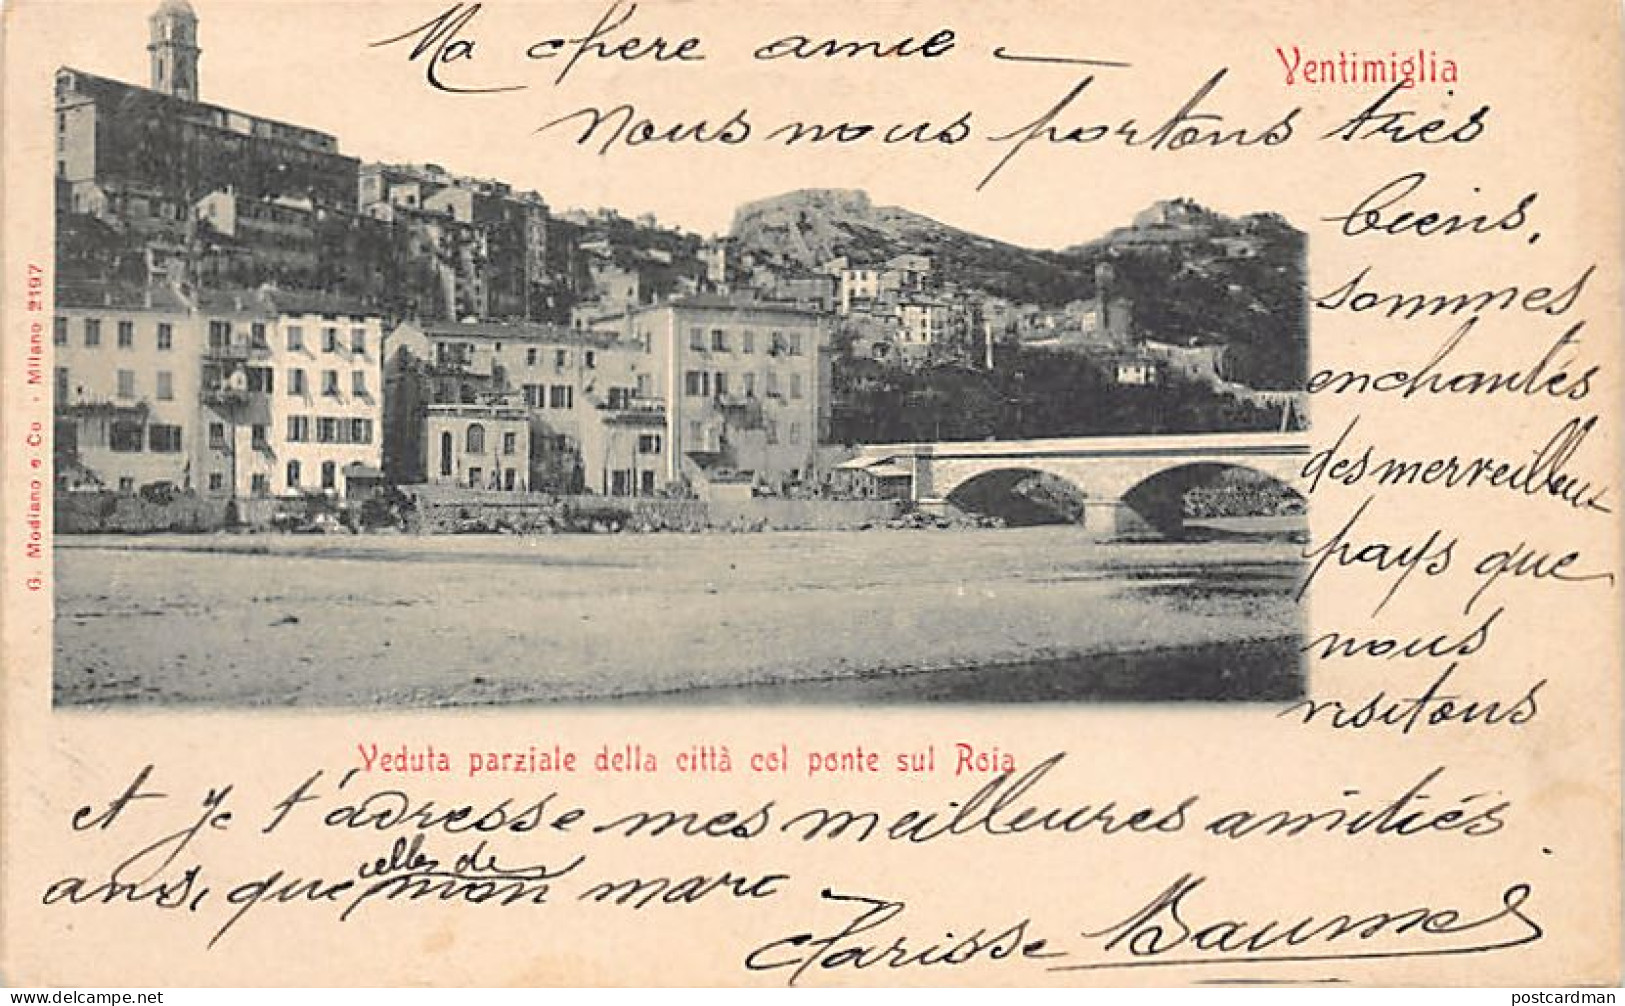 Ma chere amie —
Ventimiglia
nous nous portons très
biens,
sommes
enchantés
des merveilleux
pays que
nous
visitons
G. Modiano e Co. - Milano 2197
Veduta parziale della città col ponte sul Roia
et je t'adresse mes meilleures amitiés
celles de
ansi, que mon mari —
Clarisse
postcardman